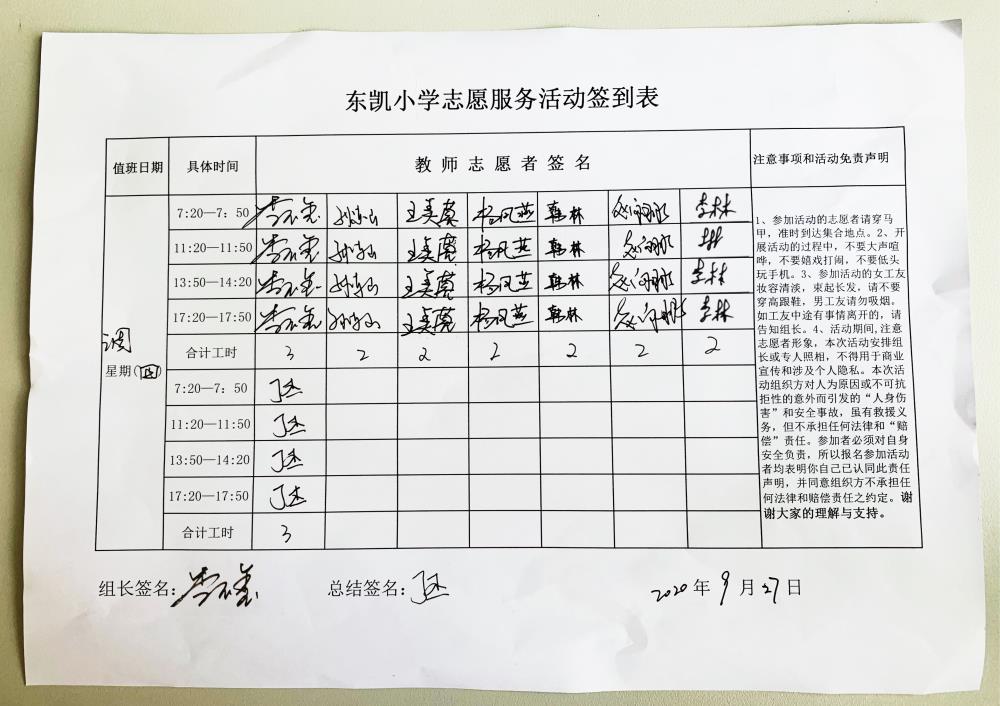 东凯小学志愿服务活动签到表
值班日期 具体时间 教师志愿者签名 注意事项和活动免责声明
7:20—7：50 王美霞 杨凤燕 韩林 李林
11:20—11:50 王美霞 杨凤燕 韩林
13:50—14:20 王美霞 杨凤燕 韩林 李林
17:20—17:50 王美霞 杨凤燕 韩林 李林
合计工时 3 2 2 2 2 2 2
调
星期(四)
7:20—7：50 丁杰
11:20—11:50 丁杰
13:50—14:20 丁杰
17:20—17:50 丁杰
合计工时 3
1、参加活动的志愿者请穿马
甲，准时到达集合地点。2、开
展活动的过程中，不要大声喧
哗，不要嬉戏打闹，不要低头
玩手机。3、参加活动的女工友
妆容清淡，束起长发，请不要
穿高跟鞋，男工友请勿吸烟。
如工友中途有事情离开的，请
告知组长。4、活动期间，注意
志愿者形象，本次活动安排组
长或专人照相，不得用于商业
宣传和涉及个人隐私。本次活
动组织方对人为原因或不可抗
拒性的意外而引发的“人身伤
害”和安全事故，虽有救援义
务，但不承担任何法律和“赔
偿”责任。参加者必须对自身
安全负责，所以报名参加活动
者均表明你自己已认同此责任
声明，并同意组织方不承担任
何法律和赔偿责任之约定。谢
谢大家的理解与支持。
组长签名： 总结签名：丁杰 2020年9月27日